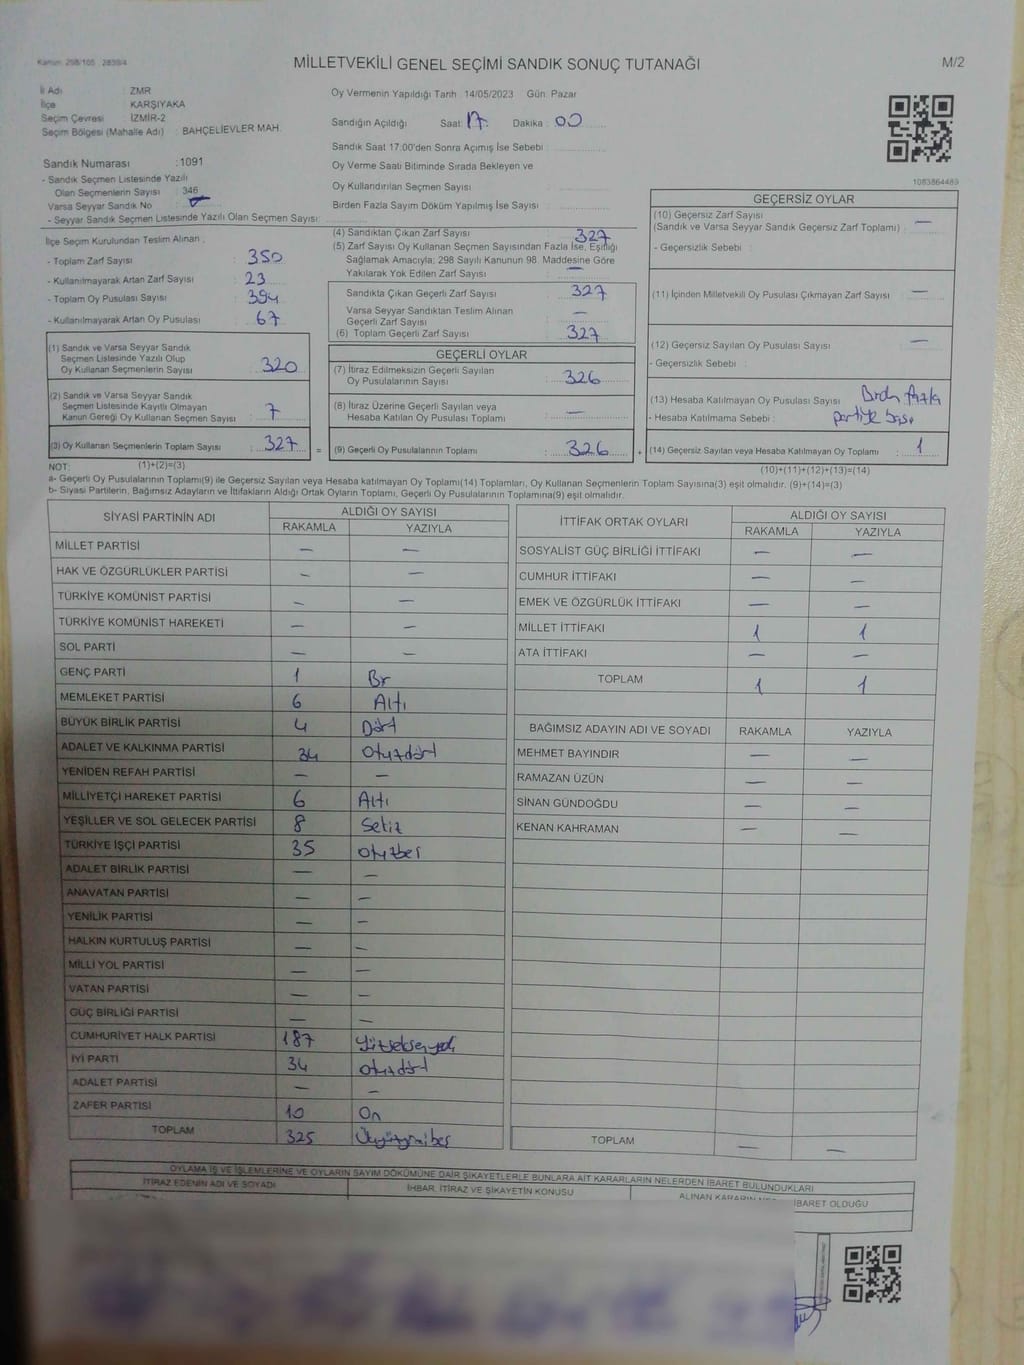 Kanun: 298/105 2839/4
MİLLETVEKİLİ GENEL SEÇİMİ SANDIK SONUÇ TUTANAĞI
M/2
İl Adı : ZMR
İlçe KARŞIYAKA
Seçim Çevresi İZMİR-2
Seçim Bölgesi (Mahalle Adı) : BAHÇELİEVLER MAH.
Sandık Numarası :1091
- Sandık Seçmen Listesinde Yazılı
Olan Seçmenlerin Sayısı : 346
Varsa Seyyar Sandık No
- Seyyar Sandık Seçmen Listesinde Yazılı Olan Seçmen Sayısı:
Oy Vermenin Yapıldığı Tarih 14/05/2023 Gün: Pazar
Sandığın Açıldığı Saat: 17 Dakika : 00
Sandık Saat 17.00'den Sonra Açımış İse Sebebi :
Oy Verme Saati Bitiminde Sırada Bekleyen ve
Oy Kullandırılan Seçmen Sayısı
Birden Fazla Sayım Döküm Yapılmış İse Sayısı :
1083864489
İlçe Seçim Kurulundan Teslim Alınan ;
- Toplam Zarf Sayısı : 350
- Kullanılmayarak Artan Zarf Sayısı : 23
- Toplam Oy Pusulası Sayısı : 394
- Kullanılmayarak Artan Oy Pusulası : 67
(1) Sandık ve Varsa Seyyar Sandık
Seçmen Listesinde Yazılı Olup
Oy Kullanan Seçmenlerin Sayısı : 320
(2) Sandık ve Varsa Seyyar Sandık
Seçmen Listesinde Kayıtlı Olmayan
Kanun Gereği Oy Kullanan Seçmen Sayısı : 7
(3) Oy Kullanan Seçmenlerin Toplam Sayısı : 327
(4) Sandıktan Çıkan Zarf Sayısı : 327
(5) Zarf Sayısı Oy Kullanan Seçmen Sayısından Fazla İse, Eşitliği
Sağlamak Amacıyla; 298 Sayılı Kanunun 98. Maddesine Göre
Yakılarak Yok Edilen Zarf Sayısı : —
Sandıkta Çıkan Geçerli Zarf Sayısı : 327
Varsa Seyyar Sandıktan Teslim Alınan
Geçerli Zarf Sayısı : —
(6) Toplam Geçerli Zarf Sayısı : 327
GEÇERLİ OYLAR
(7) İtiraz Edilmeksizin Geçerli Sayılan
Oy Pusulalarının Sayısı : 326
(8) İtiraz Üzerine Geçerli Sayılan veya
Hesaba Katılan Oy Pusulası Toplamı : —
= (9) Geçerli Oy Pusulalarının Toplamı : 326 +
GEÇERSİZ OYLAR
(10) Geçersiz Zarf Sayısı : —
(Sandık ve Varsa Seyyar Sandık Geçersiz Zarf Toplamı)
- Geçersizlik Sebebi :
(11) İçinden Milletvekili Oy Pusulası Çıkmayan Zarf Sayısı : —
(12) Geçersiz Sayılan Oy Pusulası Sayısı : —
- Geçersizlik Sebebi :
(13) Hesaba Katılmayan Oy Pusulası Sayısı
- Hesaba Katılmama Sebebi : partiye
(14) Geçersiz Sayılan veya Hesaba Katılmayan Oy Toplamı : 1
NOT: (1)+(2)=(3)
(10)+(11)+(12)+(13)=(14)
a- Geçerli Oy Pusulalarının Toplamı(9) ile Geçersiz Sayılan veya Hesaba katılmayan Oy Toplamı(14) Toplamları, Oy Kullanan Seçmenlerin Toplam Sayısına(3) eşit olmalıdır. (9)+(14)=(3)
b- Siyasi Partilerin, Bağımsız Adayların ve İttifakların Aldığı Ortak Oyların Toplamı, Geçerli Oy Pusulalarının Toplamına(9) eşit olmalıdır.
SİYASİ PARTİNİN ADI ALDIĞI OY SAYISI
RAKAMLA YAZIYLA
MİLLET PARTİSİ — —
HAK VE ÖZGÜRLÜKLER PARTİSİ — —
TÜRKİYE KOMÜNİST PARTİSİ — —
TÜRKİYE KOMÜNİST HAREKETİ — —
SOL PARTİ — —
GENÇ PARTİ 1 Bir
MEMLEKET PARTİSİ 6 Altı
BÜYÜK BİRLİK PARTİSİ 4 Dört
ADALET VE KALKINMA PARTİSİ 34 Otuzdört
YENİDEN REFAH PARTİSİ — —
MİLLİYETÇİ HAREKET PARTİSİ 6 Altı
YEŞİLLER VE SOL GELECEK PARTİSİ 8 Sekiz
TÜRKİYE İŞÇİ PARTİSİ 35 otuzbeş
ADALET BİRLİK PARTİSİ — —
ANAVATAN PARTİSİ — —
YENİLİK PARTİSİ — —
HALKIN KURTULUŞ PARTİSİ — —
MİLLİ YOL PARTİSİ — —
VATAN PARTİSİ — —
GÜÇ BİRLİĞİ PARTİSİ — —
CUMHURİYET HALK PARTİSİ 187 Yüzseksenyedi
İYİ PARTİ 34 otuzdört
ADALET PARTİSİ — —
ZAFER PARTİSİ 10 On
TOPLAM 325 Üçyüzyirmibeş
İTTİFAK ORTAK OYLARI ALDIĞI OY SAYISI
RAKAMLA YAZIYLA
SOSYALİST GÜÇ BİRLİĞİ İTTİFAKI — —
CUMHUR İTTİFAKI — —
EMEK VE ÖZGÜRLÜK İTTİFAKI — —
MİLLET İTTİFAKI 1 1
ATA İTTİFAKI — —
TOPLAM 1 1
BAĞIMSIZ ADAYIN ADI VE SOYADI RAKAMLA YAZIYLA
MEHMET BAYINDIR — —
RAMAZAN ÜZÜN — —
SİNAN GÜNDOĞDU — —
KENAN KAHRAMAN — —
TOPLAM — —
OYLAMA İŞ VE İŞLEMLERİNE VE OYLARIN SAYIM DÖKÜMÜNE DAİR ŞİKAYETLERLE BUNLARA AİT KARARLARIN NELERDEN İBARET BULUNDUKLARI
İTİRAZ EDENİN ADI VE SOYADI İHBAR, İTİRAZ VE ŞİKAYETİN KONUSU ALINAN KARARIN İBARET OLDUĞU